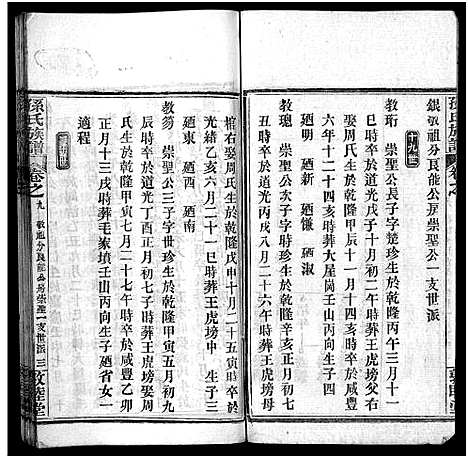 孫氏族譜 卷之
銀敬祖分良能公房崇聖公一支世派
十九世
教珩 崇聖公長子字楚珍生於乾隆丙午三月十一
巳時卒於道光戊子十一月初七子時葬王虎塝
娶周氏生於乾隆
六年十二月二十四亥時葬大屋崗壬山丙向生子四
廼明 廼新 廼慊 廼淑
教璁 崇聖公次子字
珍生於乾隆辛亥正月初
丑時卒於道光丙戌八月二十六時葬王虎塝母
棺右娶周氏生於乾隆戊申十月二十五寅時卒於
光緒乙亥六月二十一巳時葬王虎塝 生子三
廼東 廼西 廼南
教笏 崇聖公三子字世珍生於乾隆甲寅五月初九
辰時卒於道光丁酉正月初七子時葬王虎塝娶周
氏生於乾隆甲寅七月二十七年時卒於咸豐乙卯
正月十三戌時葬毛家墳壬山丙向生子廼省女一
適程
孫氏族譜 卷之九 敬祖分良能公房崇聖公一支世派 三 敦睦堂